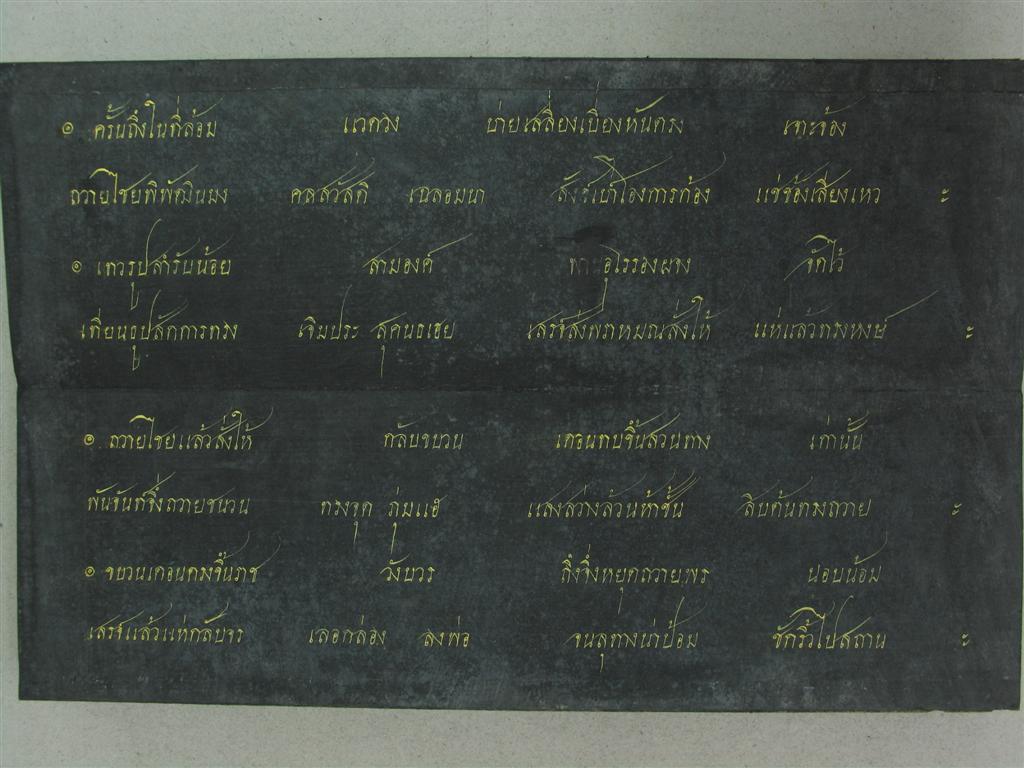 ๏ ครั้นถึงในที่ล้อม แวดวง บ่ายเสลี่ยงเบี่ยงหันตรง เคาะจ้อง
ถวายไชยพิพัฒมินมง คลสวัสดิ เฉลอมนา สังข์เป่าโองการก้อง แช่ซ้องเสียงเหว ะ
๏ เทวรูปสำรับน้อย สามองค์ อุโรรองผจง จัดไว้
เทียนธูปสักการทรง เจิมประ สุคนธเฮย เสรจ์ส่งพราหมณสั่งให้ แห่แล้วทรงหงษ์ ะ
๏ ถวายไชยแล้วสั่งให้ กลับขบวน เดอนทบขึ้นสวนทาง เก่านั้น
พันจันท์จึ่งถวายชนวน ทรงจุด ภุ่มแฮ แสงสว่างล้วนห้าชั้น สิบต้นทางถวาย ะ
๏ ขบวนเดอนตรงขึ้นราช วังบวร ถึงจึ่งหยุดถวายพร นอบน้อม
เสรจ์แล้วแห่กลับจร เลอกล่อง ลงพ่อ จนลุทางน่าป้อม ชักริ้วไปสถาน ะ